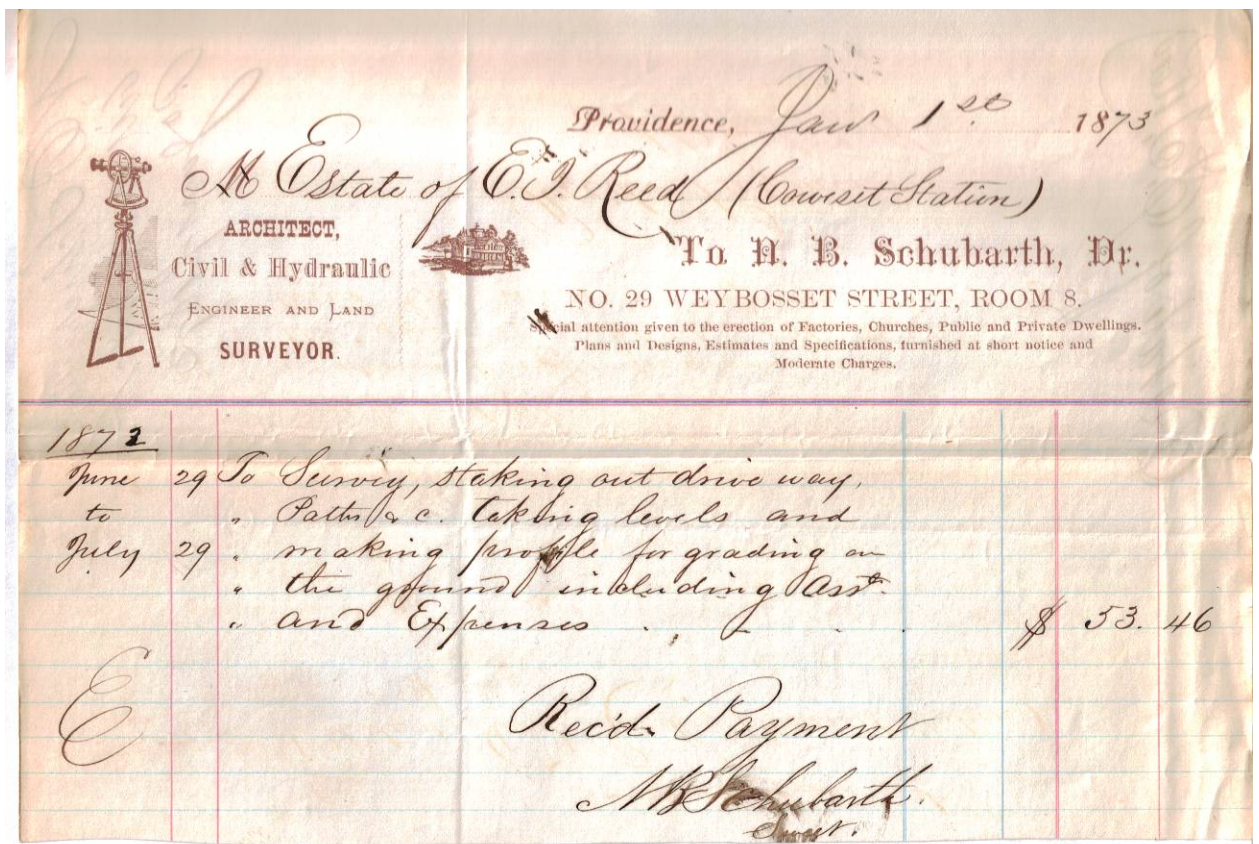 Providence, Jan 1st 1873
M Estate of E. J. Reed (Coweset Station)
ARCHITECT,
Civil & Hydraulic
ENGINEER AND LAND
SURVEYOR.
To N. B. Schubarth, Dr.
NO. 29 WEYBOSSET STREET, ROOM 8.
Special attention given to the erection of Factories, Churches, Public and Private Dwellings.
Plans and Designs, Estimates and Specifications, furnished at short notice and
Moderate Charges.
1872
June 29 To Survey, staking out drive way,
to " Paths & c. taking levels and
July 29 " making profile for grading on
" the ground including Asst.
" and Expenses . . - . . $ 53. 46
E
Rec'd. Payment
N B Schubarth.